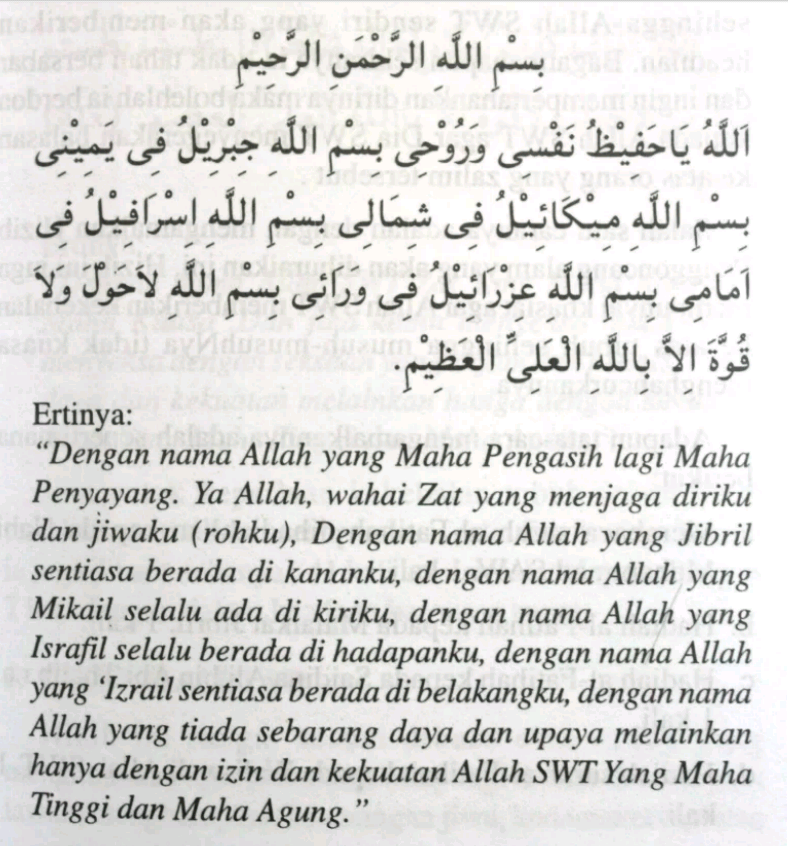 بِسْمِ اللَّهِ الرَّحْمَنِ الرَّحِيْمِ
اَللَّهُ يَاحَفِيْظُ نَفْسِى وَرُوْحِى بِسْمِ اللَّهِ جِبْرِيْلُ فِى يَمِيْنِى
بِسْمِ اللَّهِ مِيْكَائِيْلُ فِى شِمَالِى بِسْمِ اللَّهِ اِسْرَافِيْلُ فِى
اَمَامِى بِسْمِ اللَّهِ عِزْرَائِيْلُ فِى وَرَائِى بِسْمِ اللَّهِ لاَحَوْلَ وَلاَ
قُوَّةَ اِلاَّ بِاللَّهِ الْعَلِىِّ الْعَظِيْمِ.
Ertinya:
“Dengan nama Allah yang Maha Pengasih lagi Maha
Penyayang. Ya Allah, wahai Zat yang menjaga diriku
dan jiwaku (rohku), Dengan nama Allah yang Jibril
sentiasa berada di kananku, dengan nama Allah yang
Mikail selalu ada di kiriku, dengan nama Allah yang
Israfil selalu berada di hadapanku, dengan nama Allah
yang ‘Izrail sentiasa berada di belakangku, dengan nama
Allah yang tiada sebarang daya dan upaya melainkan
hanya dengan izin dan kekuatan Allah SWT Yang Maha
Tinggi dan Maha Agung.”